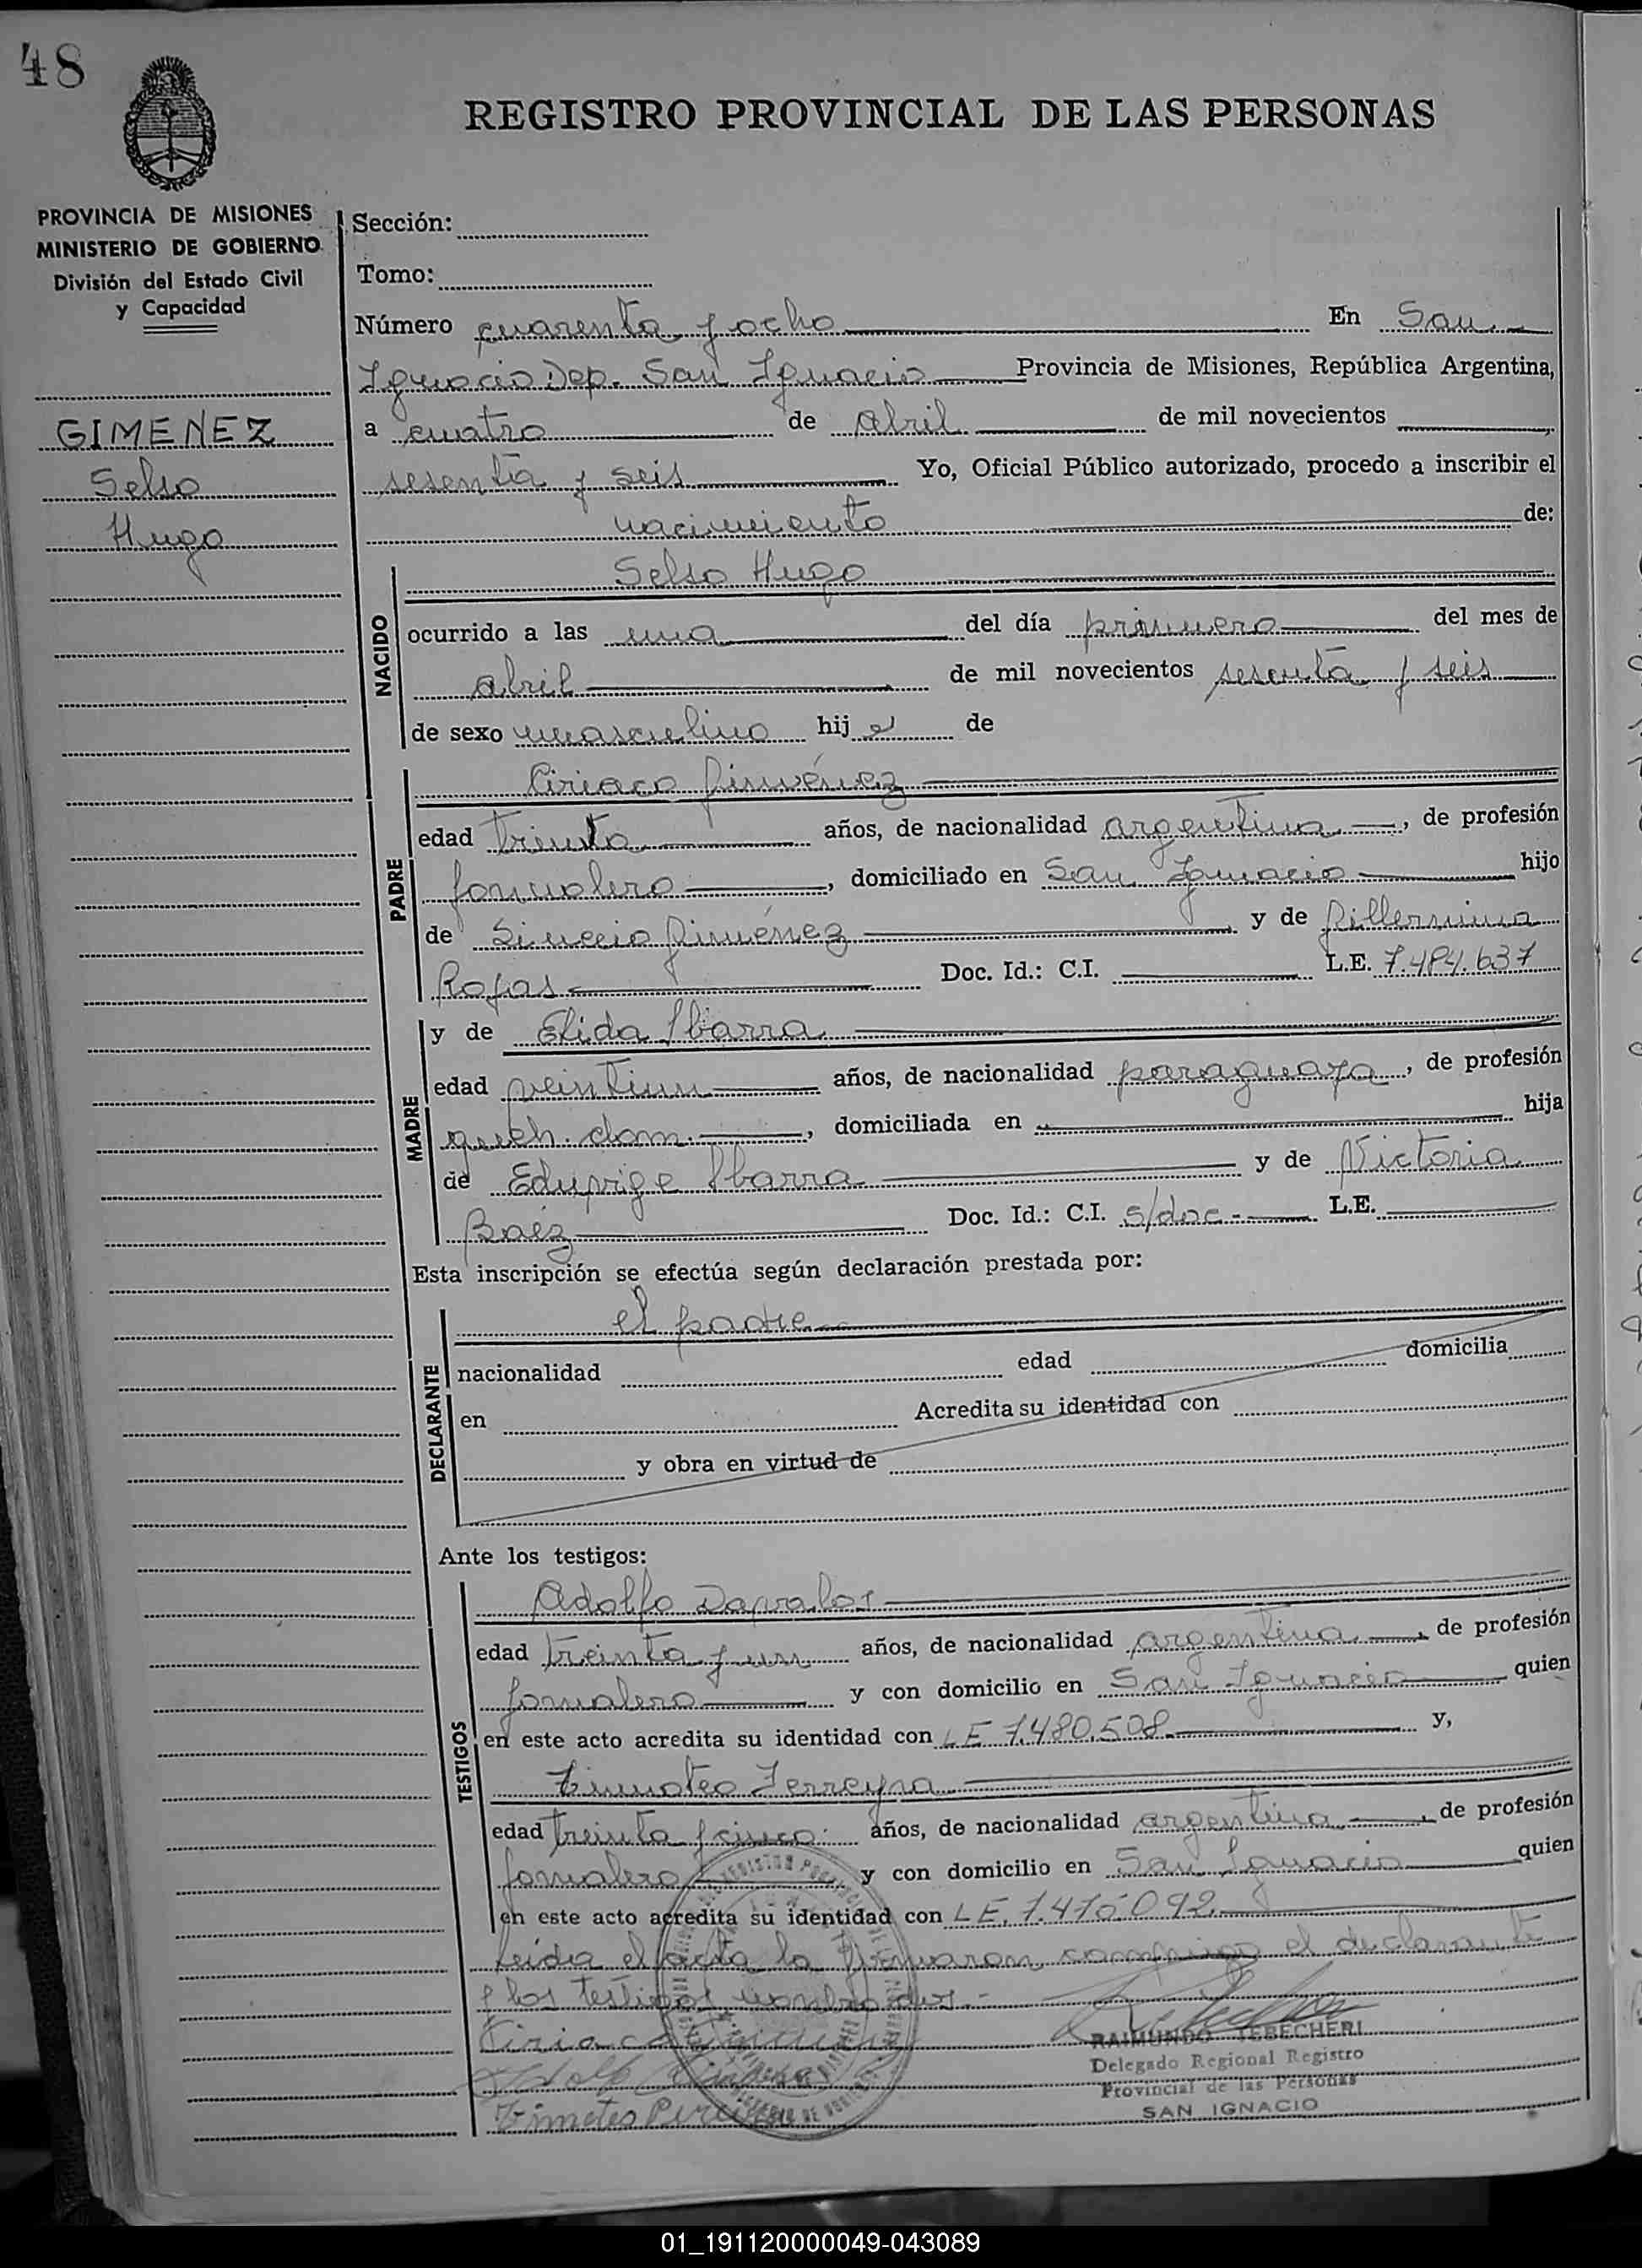 48
REGISTRO PROVINCIAL DE LAS PERSONAS
PROVINCIA DE MISIONES
MINISTERIO DE GOBIERNO
División del Estado Civil
y Capacidad
GIMENEZ
Selso
Hugo
Sección:
Tomo:
Número cuarenta y ocho En San
Ignacio Dep. San Ignacio Provincia de Misiones, República Argentina,
a cuatro de abril de mil novecientos
sesenta y seis Yo, Oficial Público autorizado, procedo a inscribir el
nacimiento de:
NACIDO
Selso Hugo
ocurrido a las una del día primero del mes de
abril de mil novecientos sesenta y seis
de sexo masculino hij o de
PADRE
Ciriaco Giménez
edad treinta años, de nacionalidad argentina, de profesión
jornalero, domiciliado en San Ignacio hijo
de Giménez y de
Rojas Doc. Id.: C.I. L.E. 7.484.637
MADRE
y de Elida Ibarra
edad veintiun años, de nacionalidad paraguaya, de profesión
queh. dom., domiciliada en hija
de Eduvige Ibarra y de Victoria
Baéz Doc. Id.: C.I. s/doc.- L.E.
Esta inscripción se efectúa según declaración prestada por:
DECLARANTE
el padre
nacionalidad edad domicilia
en Acredita su identidad con
y obra en virtud de
Ante los testigos:
TESTIGOS
Adolfo Davalos
edad treinta y un años, de nacionalidad argentina, de profesión
jornalero y con domicilio en San Ignacio quien
en este acto acredita su identidad con LE 7.480.508 y,
Timoteo Ferreyra
edad treinta y cinco años, de nacionalidad argentina, de profesión
jornalero y con domicilio en San Ignacio quien
en este acto acredita su identidad con LE.
Leída el acta la firmaron conmigo el declarante
y los testigos nombrados.-
RAIMUNDO TEBECHERI
Delegado Regional Registro
Provincial de las Personas
SAN IGNACIO
01_191120000049-043089